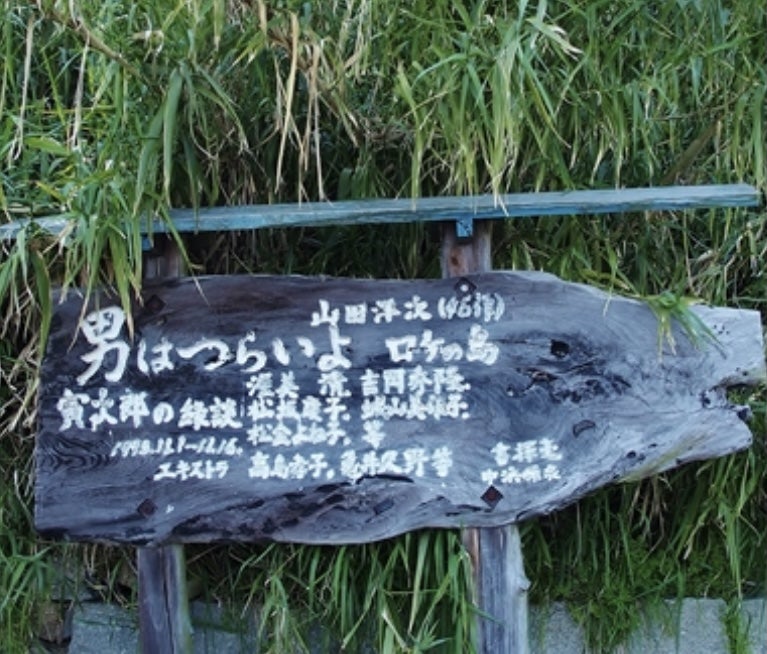 山田洋次(46作)
男はつらいよ ロケの島
寅次郎の縁談
渥美 清, 吉岡秀隆,
松坂慶子, 城山美佳子,
松金よね子, 等
エキストラ 高島孝子, 亀井久野等